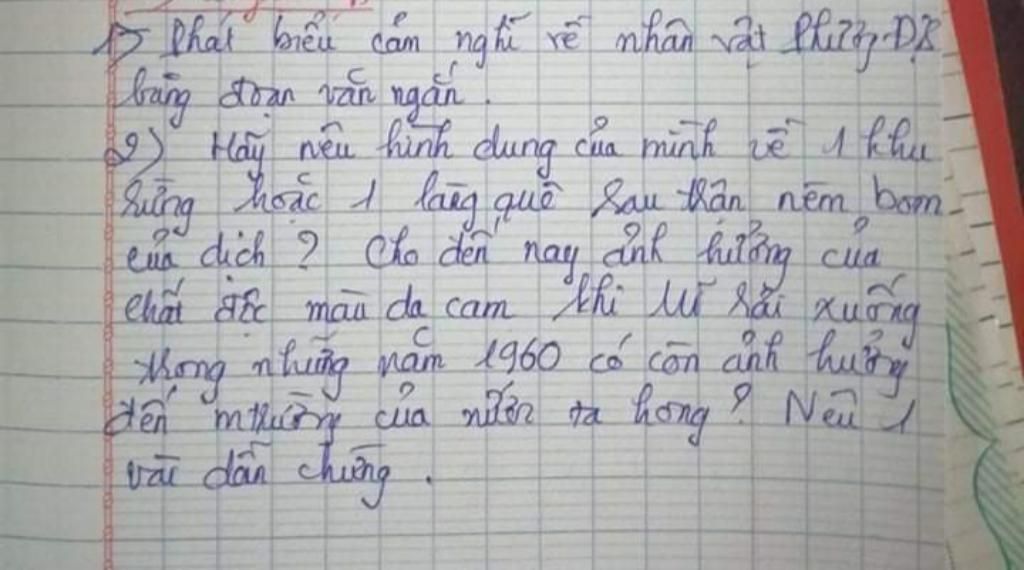 1) Phát biểu cảm nghĩ về nhân vật Phương ĐK
bằng đoạn văn ngắn.
2) Hãy nêu hình dung của mình về 1 khu
rừng hoặc 1 làng quê sau trận ném bom
của địch? Cho đến nay ảnh hưởng của
chất độc màu da cam khi Mĩ rải xuống
trong những năm 1960 có còn ảnh hưởng
đến mtrường của nước ta hong? Nêu 1
vài dẫn chứng.